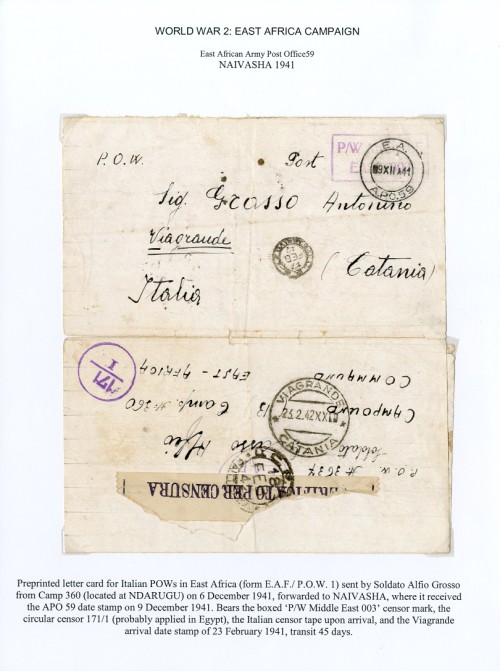 WORLD WAR 2: EAST AFRICA CAMPAIGN
East African Army Post Office59
NAIVASHA 1941
P.O.W. Post
P/W
E.A.
09XII41
APO.59
Sig. Grosso Antonino
Viagrande
(Catania)
Italia
171
I
EAST-AFRICA
COMMAND
Camp. # 360
B
CAMPOUND
Alfio
Soldato
P.O.W. #
VIAGRANDE
23.2.42XX
CATANIA
TO PER CENSURA
Preprinted letter card for Italian POWs in East Africa (form E.A.F./ P.O.W. 1) sent by Soldato Alfio Grosso
from Camp 360 (located at NDARUGU) on 6 December 1941, forwarded to NAIVASHA, where it received
the APO 59 date stamp on 9 December 1941. Bears the boxed ‘P/W Middle East 003’ censor mark, the
circular censor 171/1 (probably applied in Egypt), the Italian censor tape upon arrival, and the Viagrande
arrival date stamp of 23 February 1941, transit 45 days.